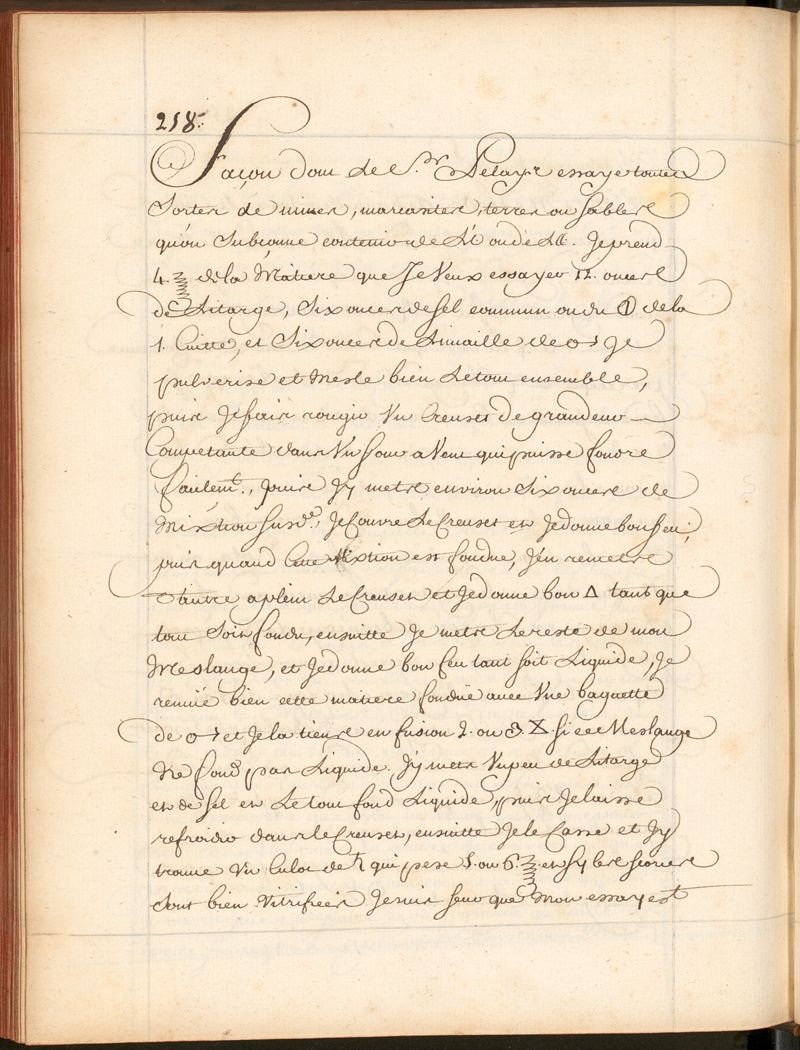 218.
Façon dont le S.r Pelays essaye toutes
Sortes de mines, marcasites, terres ou sables
qu'on Subçonne contenir de L'☉ ou de L☾. Je prend
4 ℥ de la Matiere que Je Veux essayer 12. onces
de Litarge, Six onces de sel commun ou du ⦶ de la
1. Cuitte, et Six onces de Limaille de ♂ Je
pulverise et Mesle bien Le tout ensemble,
puis Je fais rougir Vn Creuset de grandeur
Competante dans Vn four a Vent qui puisse fondre
facilem.t, puis Jy mets environ Six onces de
Mixtion susd.e, Je Couvre Le Creuset et Je donne bon feu;
puis quand Cette Mixtion est fondue, J'en remets
d'autre a plein Le Creuset et Je donne bon △ tant que
tout Soit fondu, ensuitte Je mets Le reste de mon
Meslange, et Je donne bon feu tant soit Liquide, Je
remüe bien cette matiere fonduë avec Vne baguette
de ♂ et Je la tiens en fusion 2. ou 3. ⧖ si ce Meslange
Ne fond pas Liquide, J'y mets Vn peu de Litarge
et de Sel et Le tout fond Liquide, puis Je laisse
refroidir dans le Creuset, ensuitte Je le Casse et J'y
trouve Vn Culot de ♄ qui pese 5. ou 6. ℥ et sy les scories
Sont bien Vitrifiées Je suis seur que Mon essay est